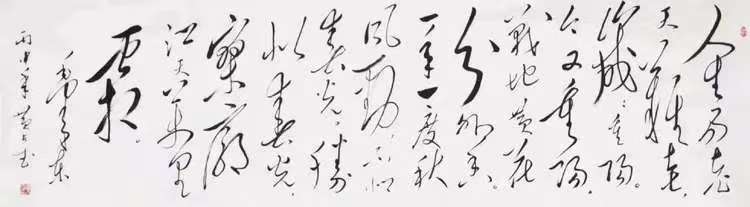 人生易老
天难老，
岁岁重阳。
今又重阳，
战地黄花
分外香。
一年一度秋
风劲，不似
春光。胜
似春光，
寥廓
江天万里
霜。
毛泽东
丙申年